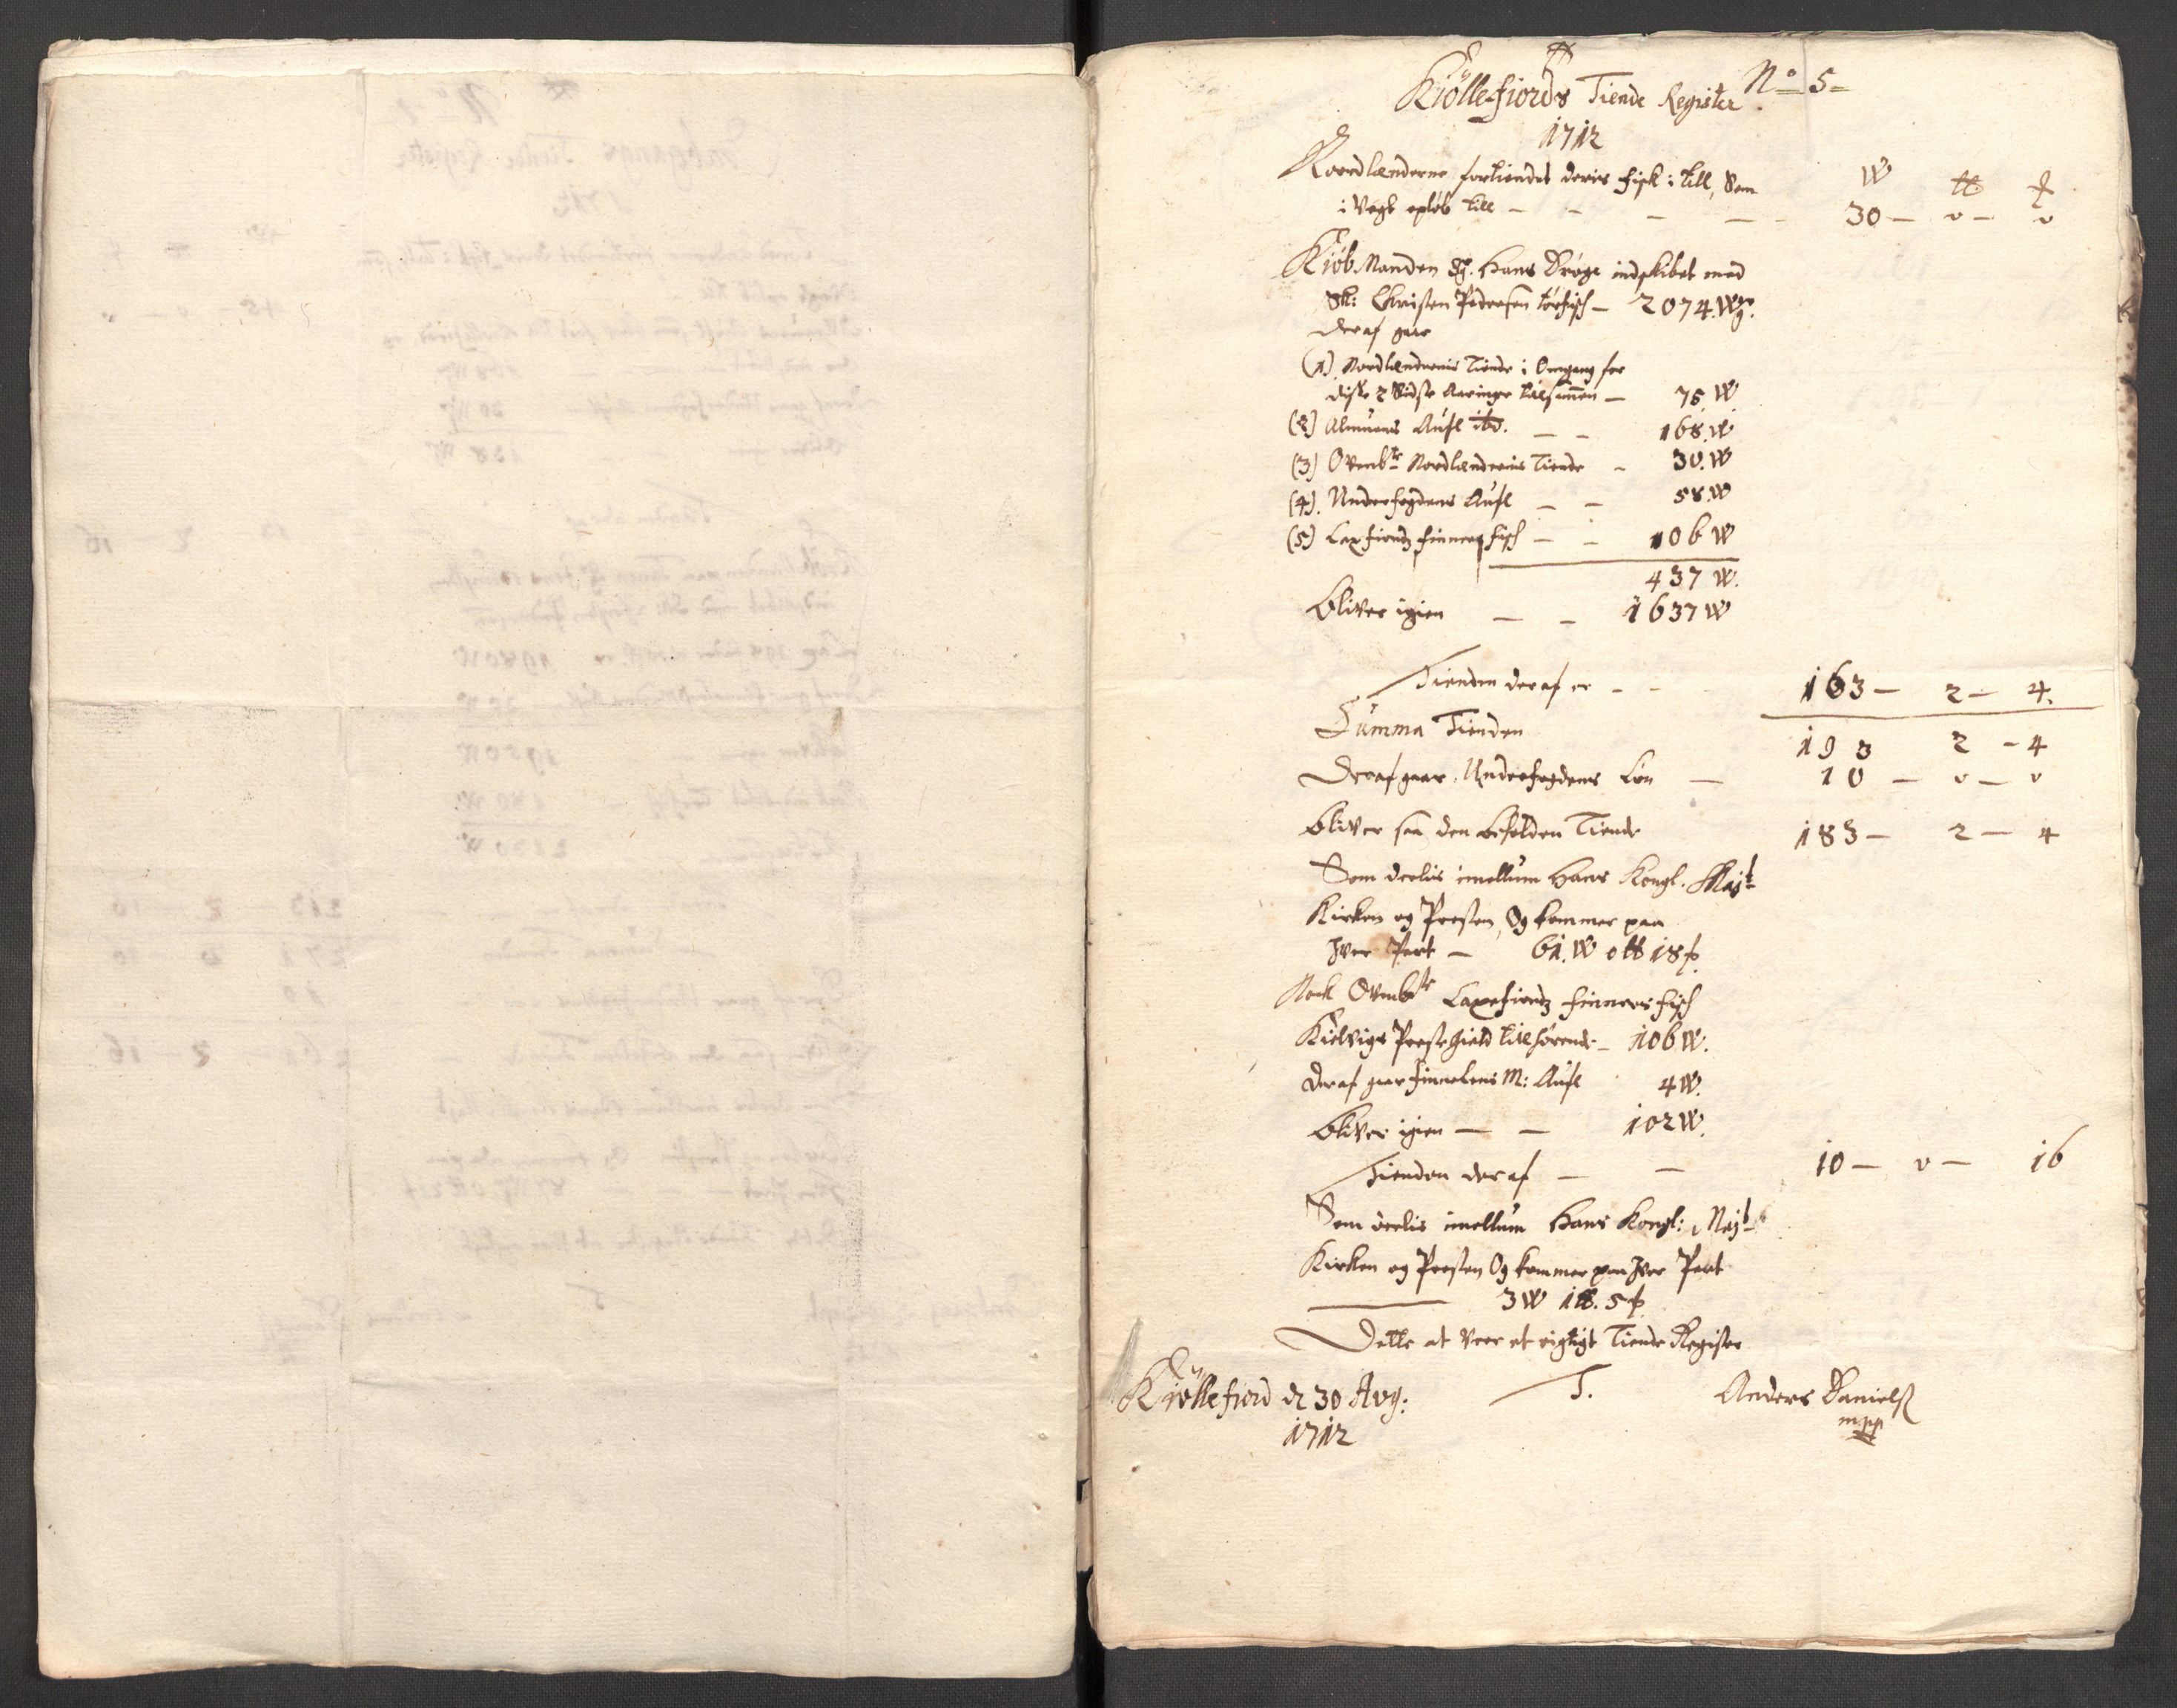 No 5
Kiøllefiords Tiende Register
1712
W ℔ ₰
Nordlænderne fortiendet deris fisk i tall, Som
i Vegt opløb till - - - - 30 - 0 - 0
Kiøb Manden Sr. Hans Drøge indskibet med
Sk: Christen Pedersen tørfisch - 2074. Wger
deraf gaar
(1) Nordlændernis Tiende i Omgang for
diste 2 Sidste Aaringer tilsammen - 75 W
(2) Almuens Aufl ibd. - - 168. W
(3) Ovenbte Nordlændernis Tiende - 30. W
(4). Underfogdens Aufl - - 58. W
(5) Laxfiords finners fisch - - 106 W
437 W.
bliver igien - - 1637 W
Tienden deraf er - - 163 - 2 - 4.
Summa Tienden 193 2 - 4
Deraf gaar Underfogdens Løn - 10 - 0 - 0
bliver saa den beholden Tiende 183 - 2 - 4
Som deelis imellum Hans Kongl. Mayt
Kirken og Presten, Og kommer paa
hver Part - 61. W 0 ℔ 18 ₰.
Nock Ovenbte Laxefiords finners fisch
Kielvigs Prestegield tilhørende - 106 W.
deraf gaar finnelens M: Aufl 4 W.
bliver igien - - 102 W.
Tienden deraf - - 10 - 0 - 16
Som deelis imellum Hans Kongl: Mayt
Kirken og Presten Og kommer paa hver Part
3 W 1 ℔. 5 ₰
Dette at vere et rigtigt Tiende Register
T.
Kiøllefiord d 30 Aug:
1712
Anders Danielß
mpp